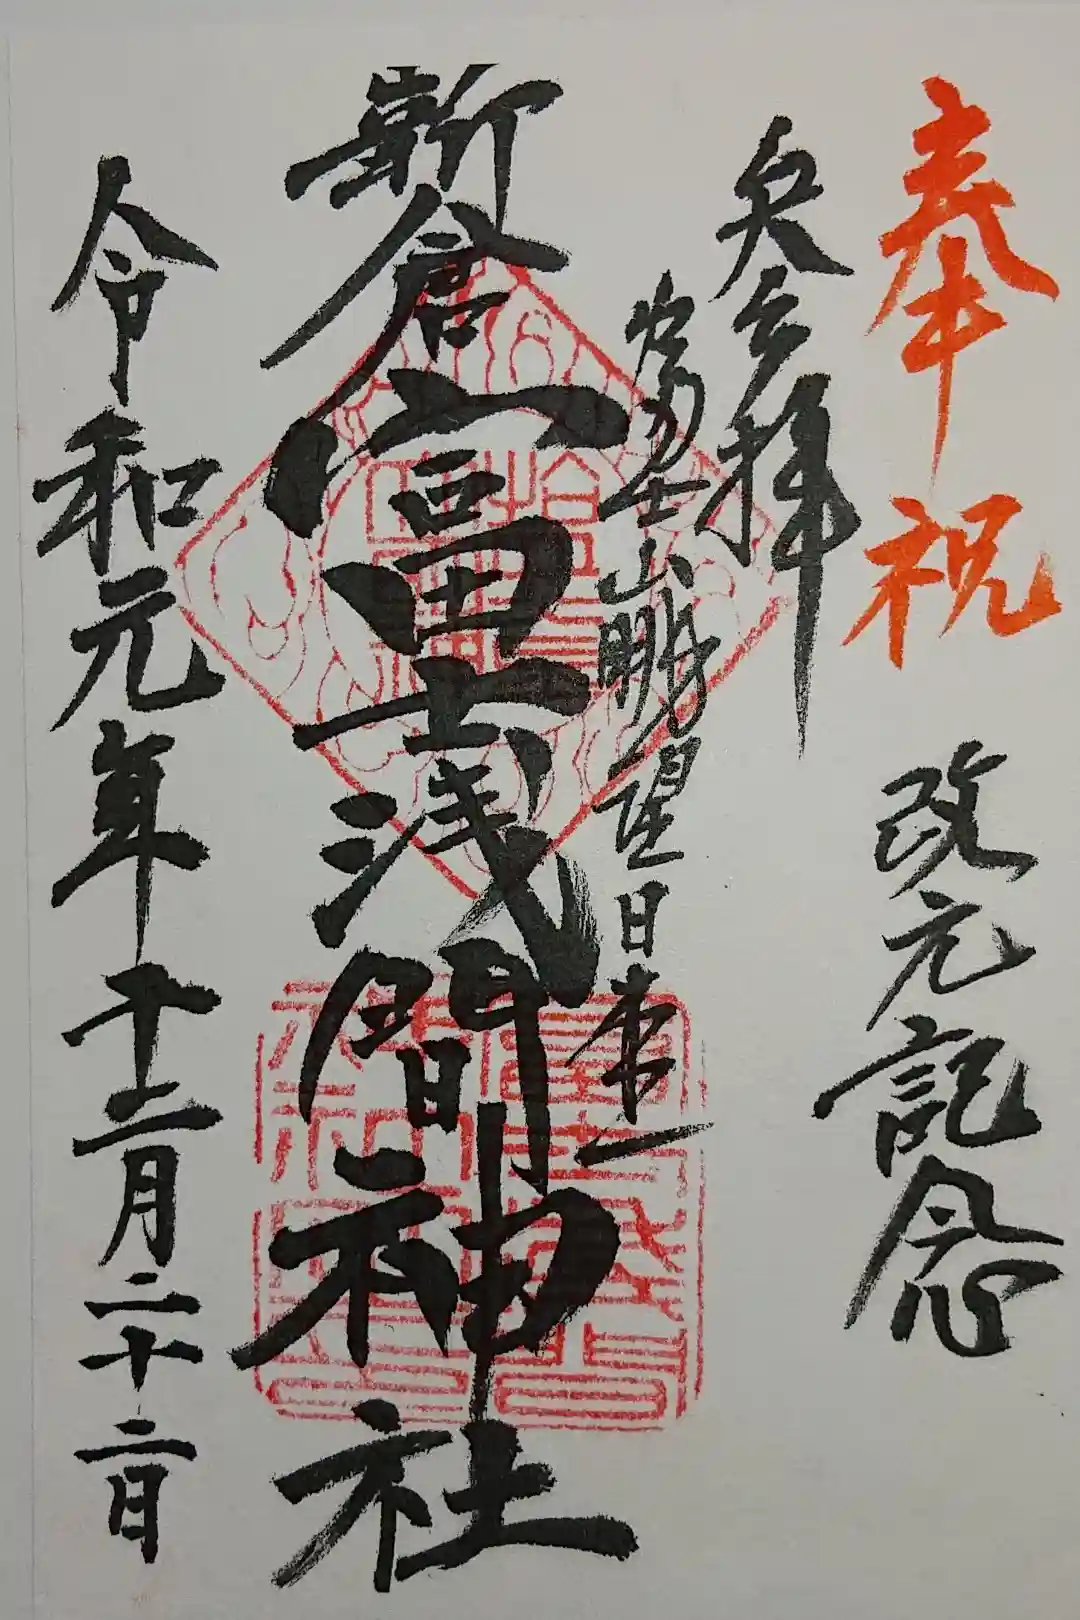 奉祝 改元記念
参拝
富士山眺望日本一
新倉富士浅間神社
令和元年十二月二十二日